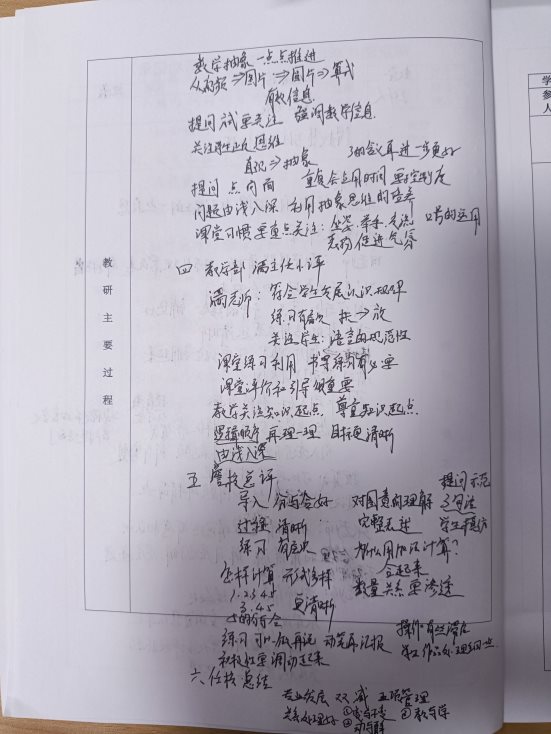 教研主要过程
数学抽象 一点点推进
从视频⇒图片⇒图片⇒算式
有效信息
提问 试要关注 强调数学信息
关注学生 思维
直观⇒抽象 的含义再进一步更好
提问 点 面 重复会占用时间 要控制度
问题由浅入深 利用抽象思维的培养
课堂习惯要重点关注：坐姿、举手、交流 口号的运用
表扬促进气氛
四 教学部 满主任小评
满老师：符合学生发展认识规律
练习有层次 扶→放
关注学生：语言的规范性
课堂练习利用 书写练习有必要
课堂评价和引导很重要
教学关注知识起点 尊重知识起点
逻辑顺序 再理一理 目标更清晰
由浅入深
五 校总评
导入 分与合好 对图意的理解 提问示范
过程 清晰 完整表述 三句话
练习 有层次 为什么用加法计算？ 学生模仿
怎样计算 形式多样 合起来
1.2.3.4.5 数量关系要渗透
3.4.5 更清晰
5的符合
练习可以 再说 动笔再汇报 操作
积极性要调动起来
六 任校总结
专业发展 双减 五项管理
关系处理好 ①变与不变 ②教与学